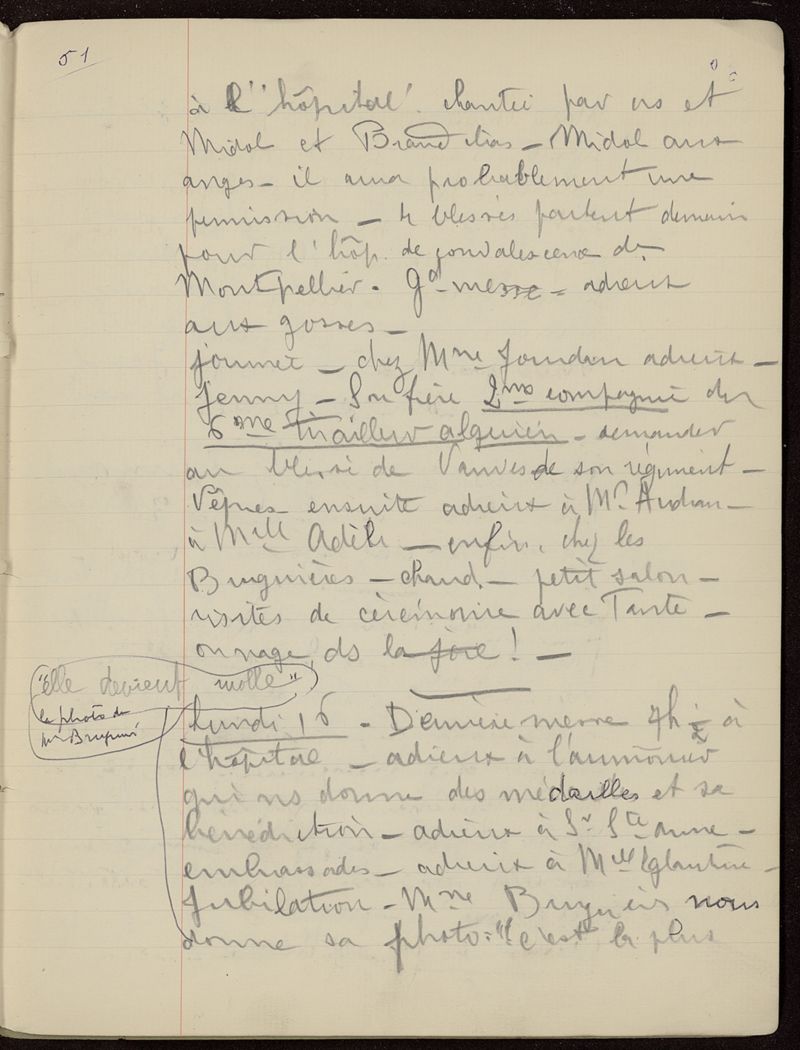 51
à l'hôpital chantée par ns et
Midol et Brand - Midol aux
anges - il aura probablement une
permission - 4 blessés partent demain
pour l'hôp. de convalescence de
Montpellier. Gd messe - adieux
aux gosses -
journée - chez Mme Jourdan adieux -
Jenny - Son frère 2me compagnie du
6me tirailleur algérien - demander
au blessé de Vanves de son régiment -
Vêpres ensuite adieux à Mr Audran -
à Melle Adèle - enfin, chez les
Bruguières - chaud. - petit salon -
visites de cérémonie avec Tante -
on nage ds la joie ! -
"elle devient molle"
la photo de
Me Bruguière
lundi 16 - Dernière messe 7h ½ à
l'hôpital - adieux à l'aumônier
qui ns donne des médailles et sa
bénédiction - adieux à Sr Ste Anne -
embrassades - adieux à Melle Eglantine -
Jubilation - Mme Bruguière nous
donne sa photo : "c'est la plus